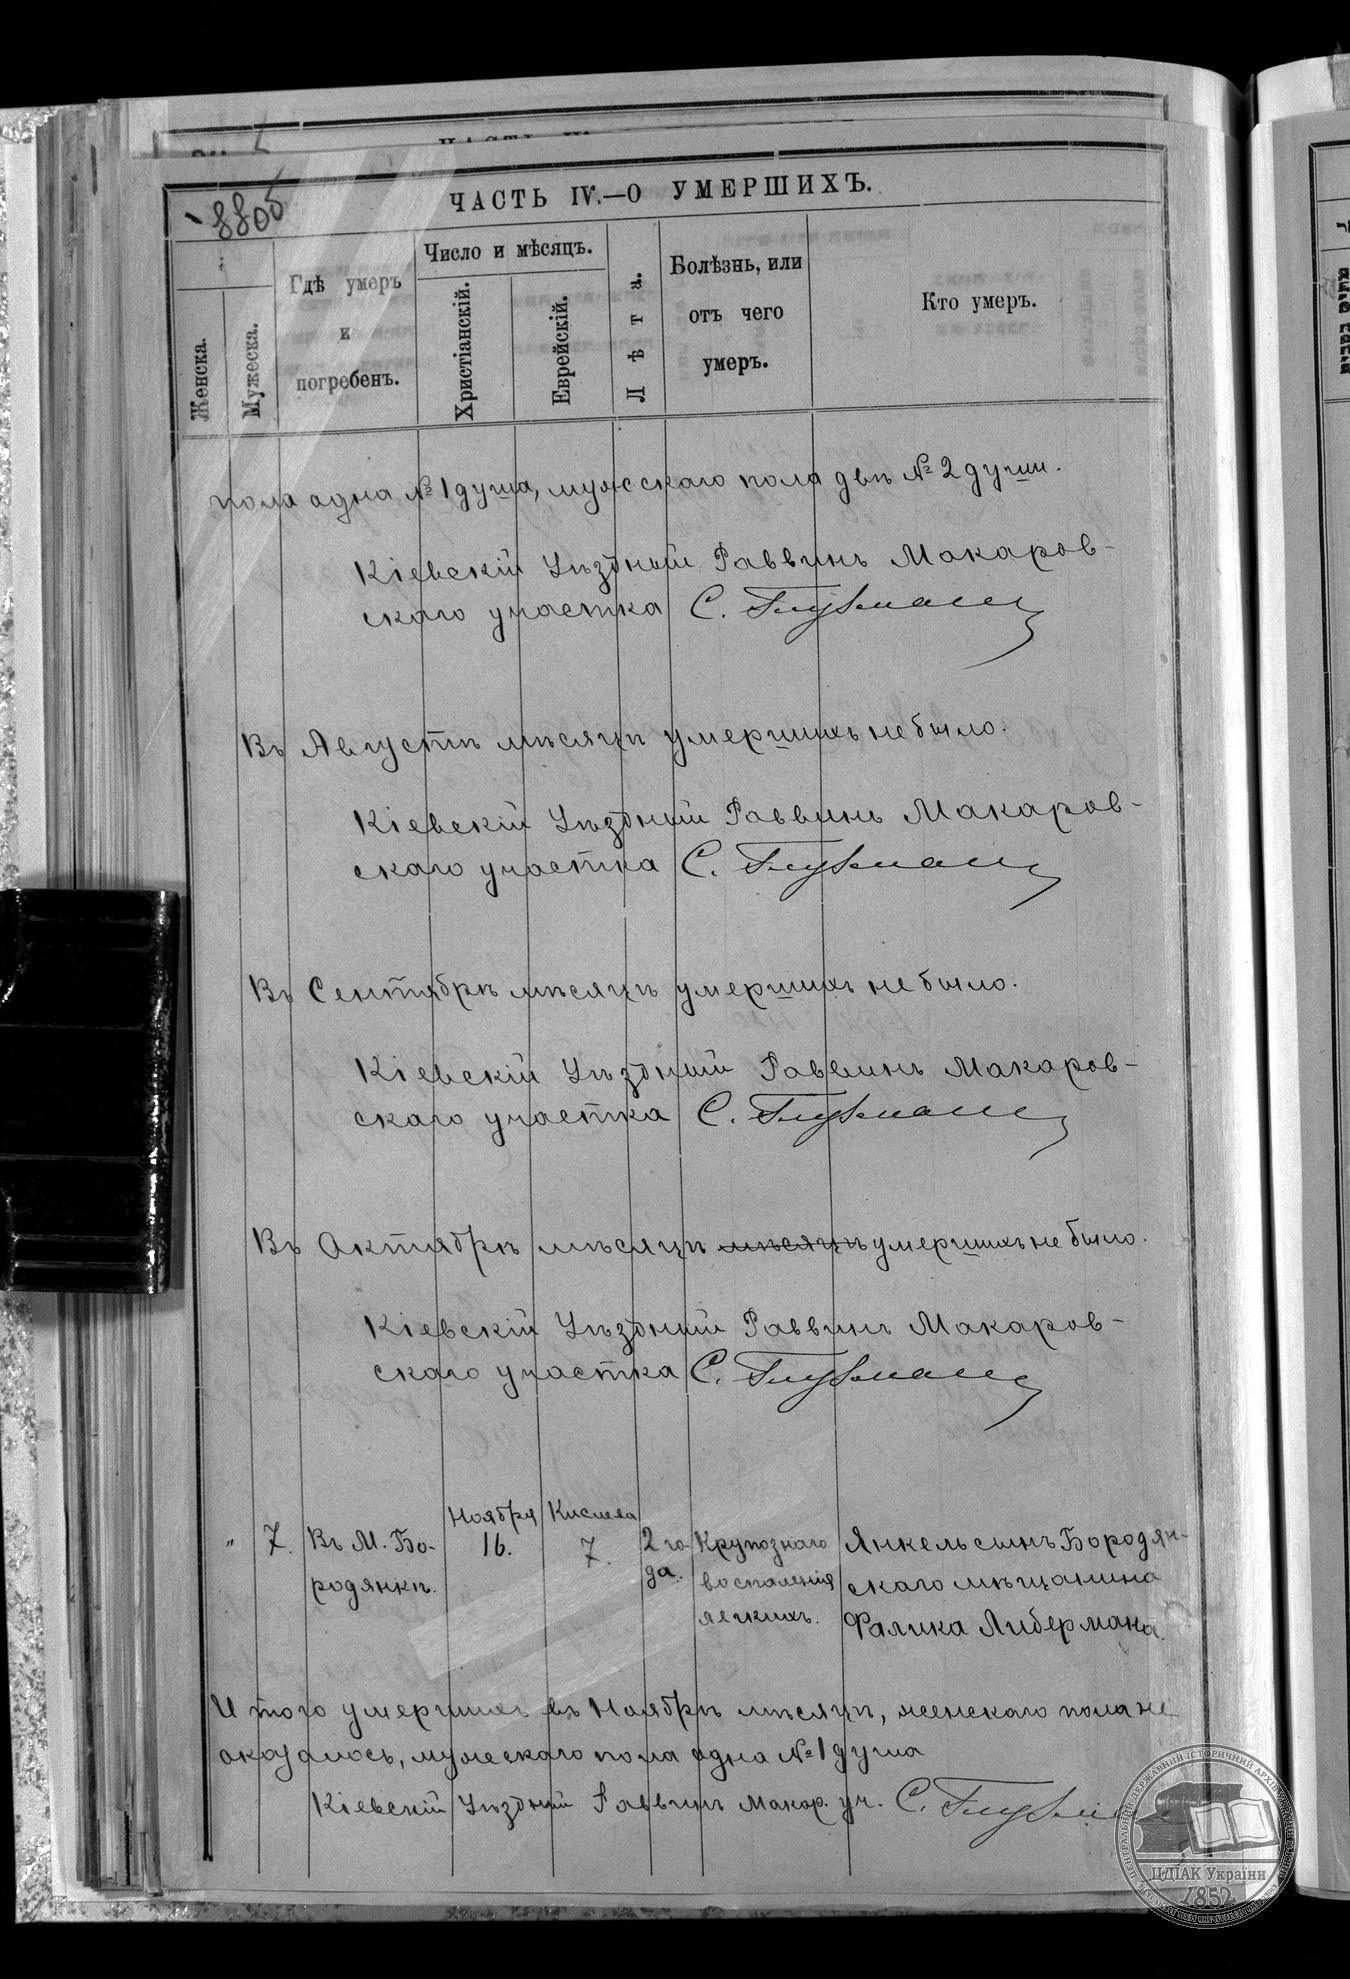 8805
ЧАСТЬ IV.—О УМЕРШИХЪ.
Женска.
Мужеска.
Гдѣ умеръ
и
погребенъ.
Число и мѣсяцъ.
Христіанскій.
Еврейскій.
Лѣта.
Болѣзнь, или
отъ чего
умеръ.
Кто умеръ.
пола одна № 1 душа, мужскаго пола двѣ № 2 души.
Кіевскій Уѣздный Раввинъ Макаров-
скаго участка С. Глузманъ
Въ Августѣ мѣсяцѣ умершихъ не было.
Кіевскій Уѣздный Раввинъ Макаров-
скаго участка С. Глузманъ
Въ Сентябрѣ мѣсяцѣ умершихъ не было.
Кіевскій Уѣздный Раввинъ Макаров-
скаго участка С. Глузманъ
Въ Октябрѣ мѣсяцѣ мѣсяцѣ умершихъ не было.
Кіевскій Уѣздный Раввинъ Макаров-
скаго участка С. Глузманъ
" 7. Въ М. Бо-
родянкѣ.
Ноября
16.
Кислева
7.
2 го-
да.
Крупознаго
воспаленія
легкихъ.
Янкель сынъ Бородян-
скаго мѣщанина
Фалика Либермана.
И того умершихъ въ Ноябрѣ мѣсяцѣ, женскаго пола не
оказалось, мужескаго пола одна № 1 душа
Кіевскій Уѣздный Раввинъ Макар. уч. С. Глузманъ
ЦЕНТРАЛЬНИЙ ДЕРЖАВНИЙ ІСТОРИЧНИЙ АРХІВ УКРАЇНИ
ЦДІАК України
1852